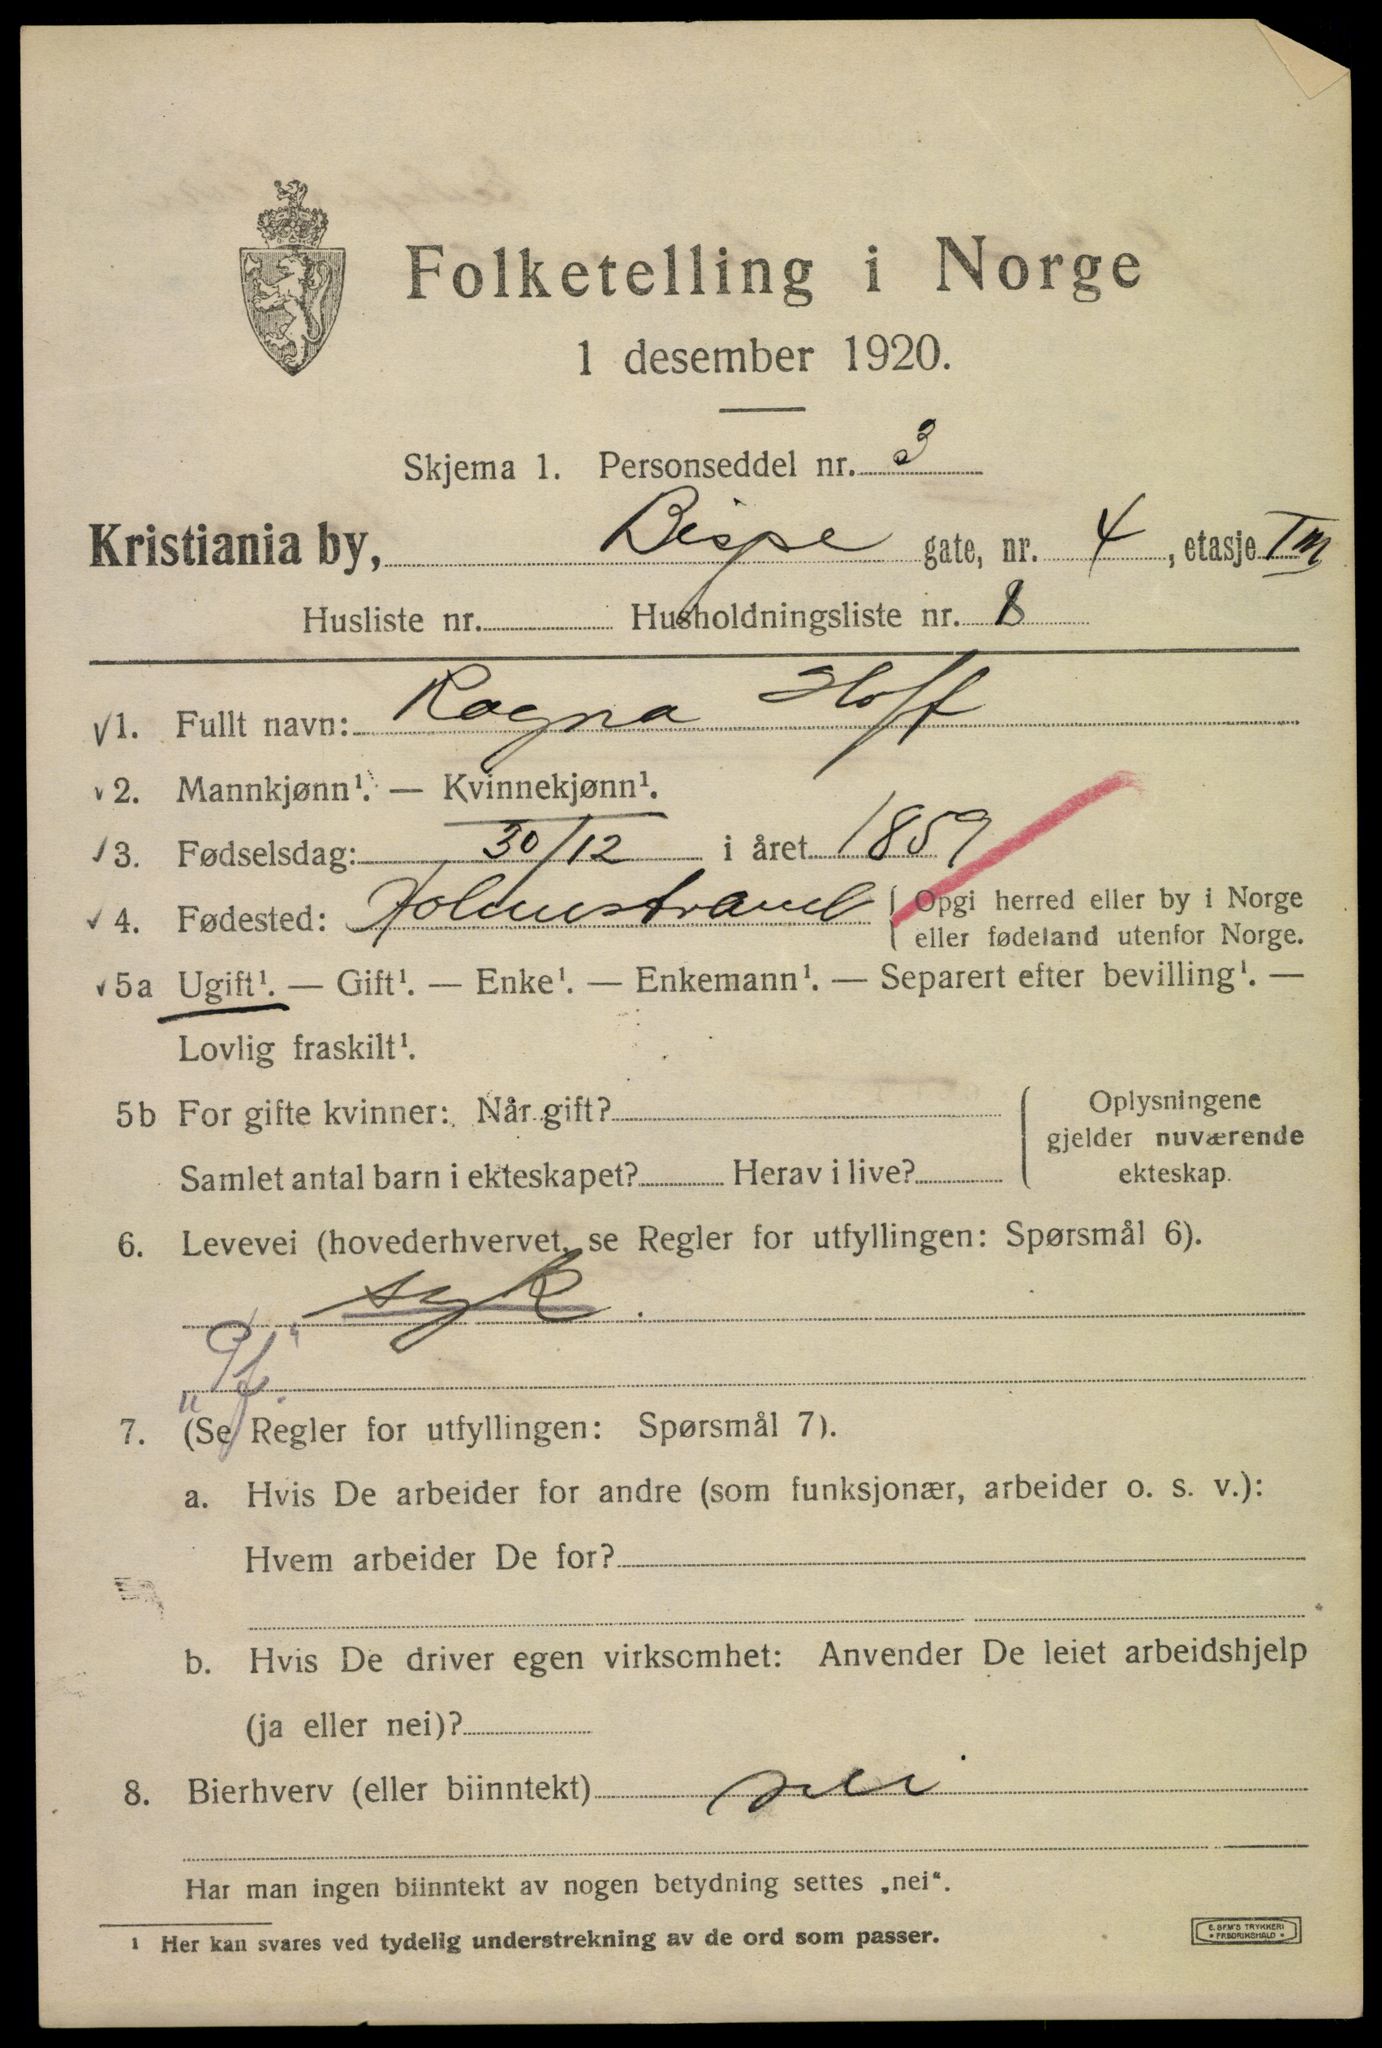 Folketelling i Norge
1 desember 1920.
Skjema 1. Personseddel nr. 3
Kristiania by, Bispe gate, nr. 4, etasje
Husliste nr. Husholdningsliste nr. 8
√1. Fullt navn: Ragna Hoff
√2. Mannkjønn¹. — Kvinnekjønn¹.
√3. Fødselsdag: 30/12 i året 1859
√4. Fødested: Holmestrand { Opgi herred eller by i Norge
eller fødeland utenfor Norge.
√5a Ugift¹. — Gift¹. — Enke¹. — Enkemann¹. — Separert efter bevilling¹. —
Lovlig fraskilt¹.
5b For gifte kvinner: Når gift?
Samlet antal barn i ekteskapet? Herav i live?
Oplysningene
gjelder nuværende
ekteskap.
6. Levevei (hovederhvervet, se Regler for utfyllingen: Spørsmål 6).
syk.
7. (Se Regler for utfyllingen: Spørsmål 7).
a. Hvis De arbeider for andre (som funksjonær, arbeider o. s. v.):
Hvem arbeider De for?
b. Hvis De driver egen virksomhet: Anvender De leiet arbeidshjelp
(ja eller nei)?
8. Bierhverv (eller biinntekt) nei
Har man ingen biinntekt av nogen betydning settes „nei“.
¹ Her kan svares ved tydelig understrekning av de ord som passer.
E. SEM'S TRYKKERI
• FREDRIKSHALD •